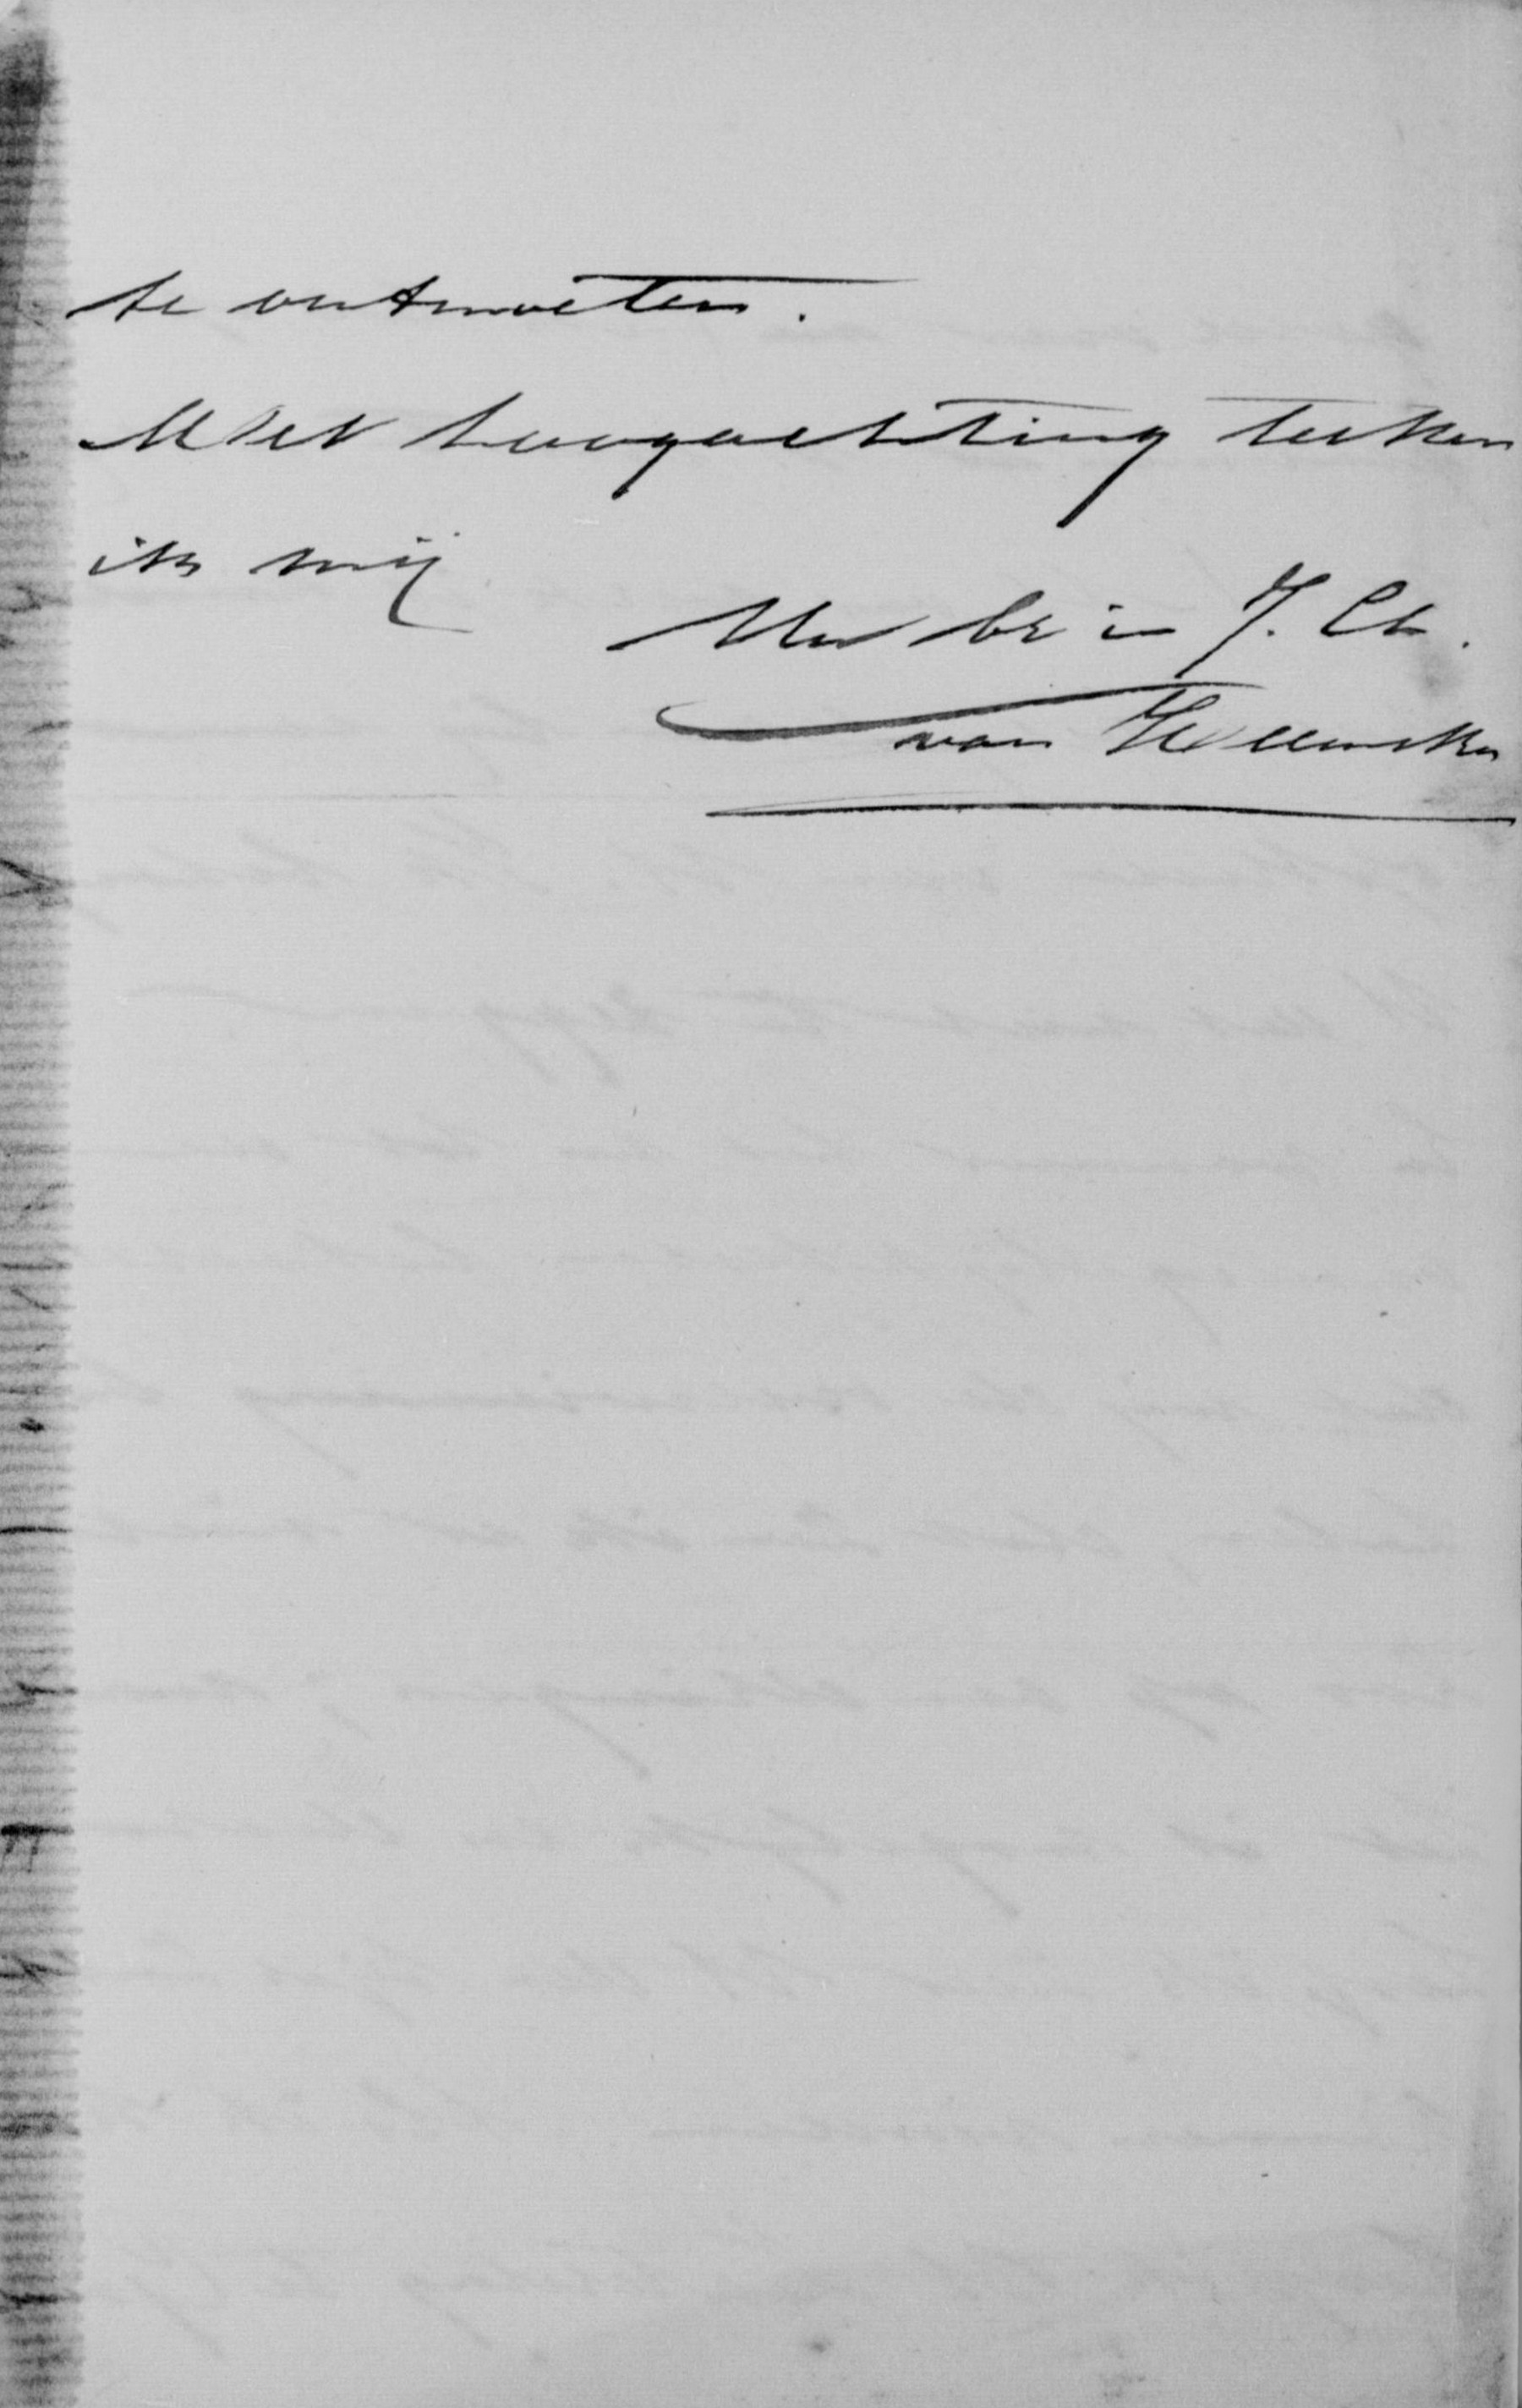 te ontmoeten.
Met hoogachting teeken
ik mij
Uw br in J. Ch.
van